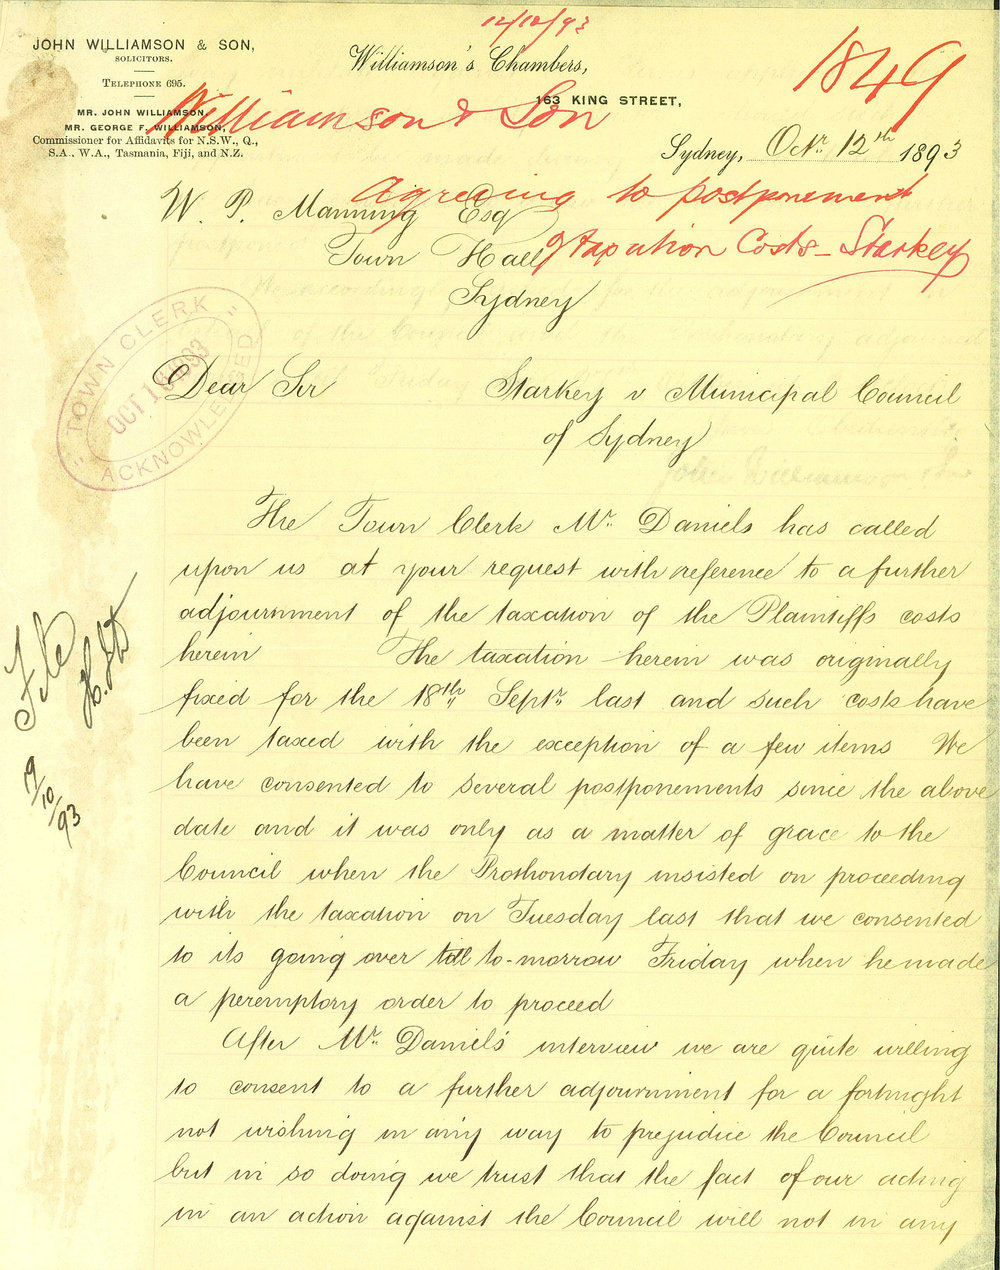 12/10/93
JOHN WILLIAMSON & SON,
SOLICITORS.
TELEPHONE 695.
MR. JOHN WILLIAMSON,
MR. GEORGE F. WILLIAMSON,
Commissioner for Affidavits for N.S.W., Q.,
S.A., W.A., Tasmania, Fiji, and N.Z.
Williamson's Chambers,
163 KING STREET,
Sydney, Octr. 12th 1893
1849
Williamson & Son
Agreeing to postponement
of taxation Costs - Starkey
W. P. Manning Esq
Town Hall
Sydney
TOWN CLERK
OCT 1 1893
ACKNOWLEDGED
Dear Sir
Starkey v Municipal Council
of Sydney
The Town Clerk Mr. Daniels has called
upon us at your request with reference to a further
adjournment of the taxation of the Plaintiffs costs
herein The taxation herein was originally
fixed for the 18th Septr. last and such costs have
been taxed with the exception of a few items We
have consented to several postponements since the above
date and it was only as a matter of grace to the
Council when the Prothondary insisted on proceeding
with the taxation on Tuesday last that we consented
to its going over till to-morrow Friday when he made
a peremptory order to proceed
After Mr. Daniels' interview we are quite willing
to consent to a further adjournment for a fortnight
not wishing in any way to prejudice the Council
but in so doing we trust that the fact of our acting
in an action against the Council will not in any
File
19/10/93